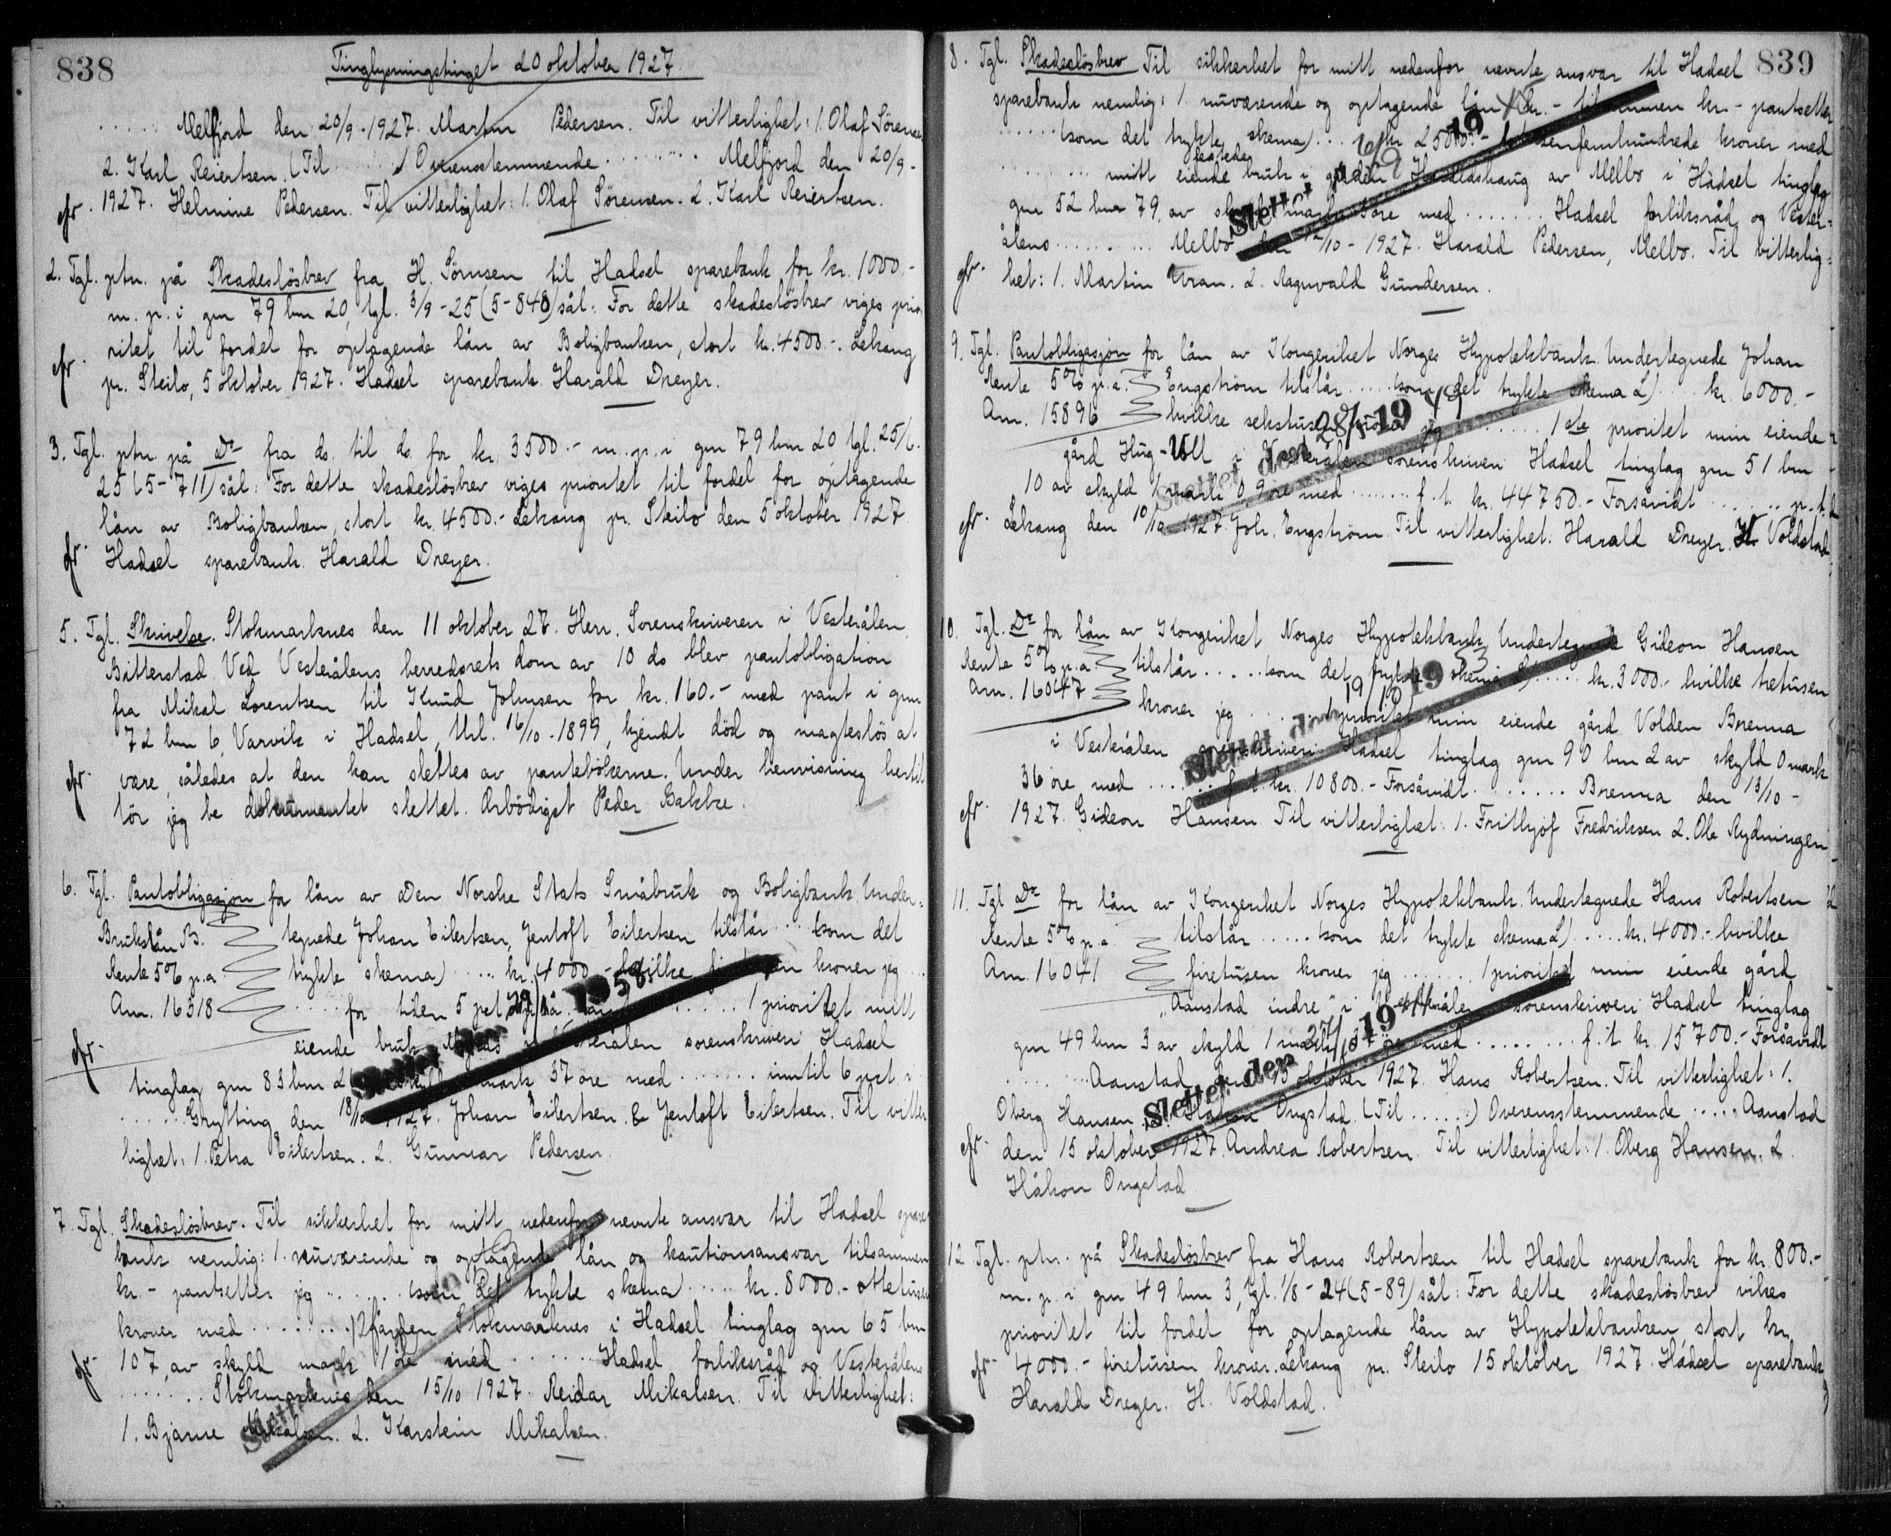 838
Tinglysningstinget 20 oktober 1927
..... Melfjord den 20/9-1927. Martin Pedersen. Til vitterlighet: 1. Olaf Sørensen
2. Karl Reiertsen. (Til ......) Overensstemmende ........ Melfjord den 20/9-
1927. Helmine Pedersen. Til vitterlighet: 1. Olaf Sørensen. 2. Karl Reiertsen.
2. Tgl. ptn. på Skadesløsbrev fra H. Sørnsen til Hadsel sparebank for kr. 1000.-
m. p. i gnr 79 bnr 20, tgl. 3/9-25 (5-848) sål: For dette skadesløsbrev viges prio
ritet til fordel for optagende lån av Boligbanken, stort kr. 4500.-. Lekang
pr. Steilo, 5 oktober 1927. Hadsel sparebank. Harald Dreyer.
3. Tgl. ptn. på Do fra ds. til ds. for kr. 3500.- m. p. i gnr 79 bnr 20, tgl. 25/6-
25 (5-711) sål: For dette skadesløsbrev viges prioritet til fordel for optagende
lån av Boligbanken, stort kr. 4500.- Lekang pr. Steilo den 5 oktober 1927
Hadsel sparebank. Harald Dreyer.
5. Tgl. Skrivelse. Stokmarknes den 11 oktober 27. Herr. Sorenskriveren i Vesterålen
Bitterstad. Ved Vesterålens herredsrets dom av 10 ds blev pantobligation
fra Mikal Lorentsen til Knud Johnsen for kr. 160.- med pant i gnr
72 bnr 6, Varvik i Hadsel, thl. 16/10-1899, kjendt død og magtesløs at
være, således at den kan slettes av pantebökerne. Under henvisning hertil
tör jeg be dokumentet slettet. Arbödigst Peder Bakke.
6. Tgl. Pantobligasjon for lån av Den Norske Stats Småbruk og Boligbank. Under-
Brukslån B. tegnede Johan Eilertsen, Jentoft Eilertsen tilstår .... (som det
Rente 5% p.a. trykte skema) .... kr. 4000.- hvilke firetusen kroner jeg ...
Am. 16318 ..... for tiden 5 pct ..... 1 prioritet mitt
eiende bruk i Vesterålen sorenskriveri Hadsel
tinglag gnr 83 bnr 2 mark 37 øre med ....... inntil 6 pct.
..... Grytting den 18/10-1927. Johan Eilertsen. & Jentoft Eilertsen. Til vitter
lighet: 1. Petra Eilertsen. 2. Gunnar Pedersen.
Slettet den 1958
7. Tgl. Skadesløsbrev. Til sikkerhet for mitt nedenfor nevnte ansvar til Hadsel spare
bank nemlig: 1. nuværende og optagende lån og kautionsansvar tilsammen
kr. - pantsetter jeg ...... (som det trykte skema ..... kr. 8000.- ottetusen
kroner med ........ i gården Stokmarknes i Hadsel tinglag gnr 65 bnr
107, av skyld mark 1 öre med ....... Hadsel forliksråd og Vesterålens
....... Stokmarknes den 15/10 1927. Reidar Mikalsen. Til vitterlighet:
1. Bjarne Mikalsen. 2. Karstein Mikalsen.
839
8. Tgl. Skadesløsbrev. Til sikkerhet for mitt nedenfor nevnte ansvar til Hadsel
sparebank nemlig: 1. nuværende og optagende lån kr. - tilsammen kr. - pantsetter
...... (som det trykte skema) .... kr. 2500.- totusenfemhundrede kroner med
........ mitt eiende bruk i gården Haraldshaug av Melbo i Hadsel tinglag
gnr 52 bnr 79, av skyld mark øre med ....... Hadsel forliksråd og Vester-
ålens ........ Melbo den 12/10-1927. Harald Pedersen, Melbo. Til vitterlig-
het: 1. Martin Uran. 2. Ragnvald Gundersen.
Slettet den 19
9. Tgl. Pantobligasjon for lån av Kongeriket Norges Hypotekbank. Undertegnede Johan
Rente 5% p.a. Engström tilstår ..... (som det trykte skema L) ..... kr. 6000.-
Am. 15896 hvilke sekstusen kroner jeg ........ 1ste prioritet min eiende
gård Haug-Ull i Vesterålen sorenskriveri Hadsel tinglag gnr 51 bnr
10 av skyld 1 mark 09 øre med ....... f. t. kr. 44750.- Forsåvidt ...... p. t.
Lekang den 10/10 1927. Joh. Engström. Til vitterlighet. Harald Dreyer. H. Voldstad
Slettet den 28/1 19
10. Tgl. Do for lån av Kongeriket Norges Hypotekbank. Undertegnede Gideon Hansen
Rente 5% p.a. tilstår ..... (som det trykte skema L) ..... kr. 3000.- hvilke tretusen
Am. 16047 kroner jeg ..... 1 prioritet min eiende gård Volden Brenna
i Vesterålen sorenskriveri Hadsel tinglag gnr 90 bnr 2 av skyld 0 mark
36 øre med ...... f. t. kr. 10800.- Forsåvidt ........ Brenna den 13/10-
1927. Gideon Hansen. Til vitterlighet: 1. Frithjof Fredriksen 2. Ole Rydningen
Slettet den 19/10 19
11. Tgl Do for lån av Kongeriket Norges Hypotekbank. Undertegnede Hans Robertsen
Rente 5% p.a tilstår ..... (som det trykte skema L) ..... kr. 4000.- hvilke
Am. 16041 firetusen kroner jeg ....... 1 prioritet min eiende gård
"Aanstad indre" i Vesterålen sorenskriveri Hadsel tinglag
gnr 49 bnr 3 av skyld 1 mark øre med ........ f. t. kr. 15700.- Forsåvidt
....... Aanstad den 15 oktober 1927. Hans Robertsen. Til vitterlighet: 1.
Oberg Hansen. 2. Håkon Ongstad. (Til ......) Overensstemmende ..... Aanstad
den 15 oktober 1927. Andrea Robertsen. Til vitterlighet: 1. Oberg Hansen. 2.
Håkon Ongstad
Slettet den 19
12 Tgl. ptn. på Skadesløsbrev fra Hans Robertsen til Hadsel sparebank for kr. 800.-
m. p. i gnr 49 bnr 3, tgl. 1/8-24 (5-89) sål: For dette skadesløsbrev vikes
prioritet til fordel for optagende lån av Hypotekbanken, stort kr.
4000.- firetusen kroner. Lekang pr. Steilo 15 oktober 1927. Hadsel sparebank
Harald Dreyer. H. Voldstad.